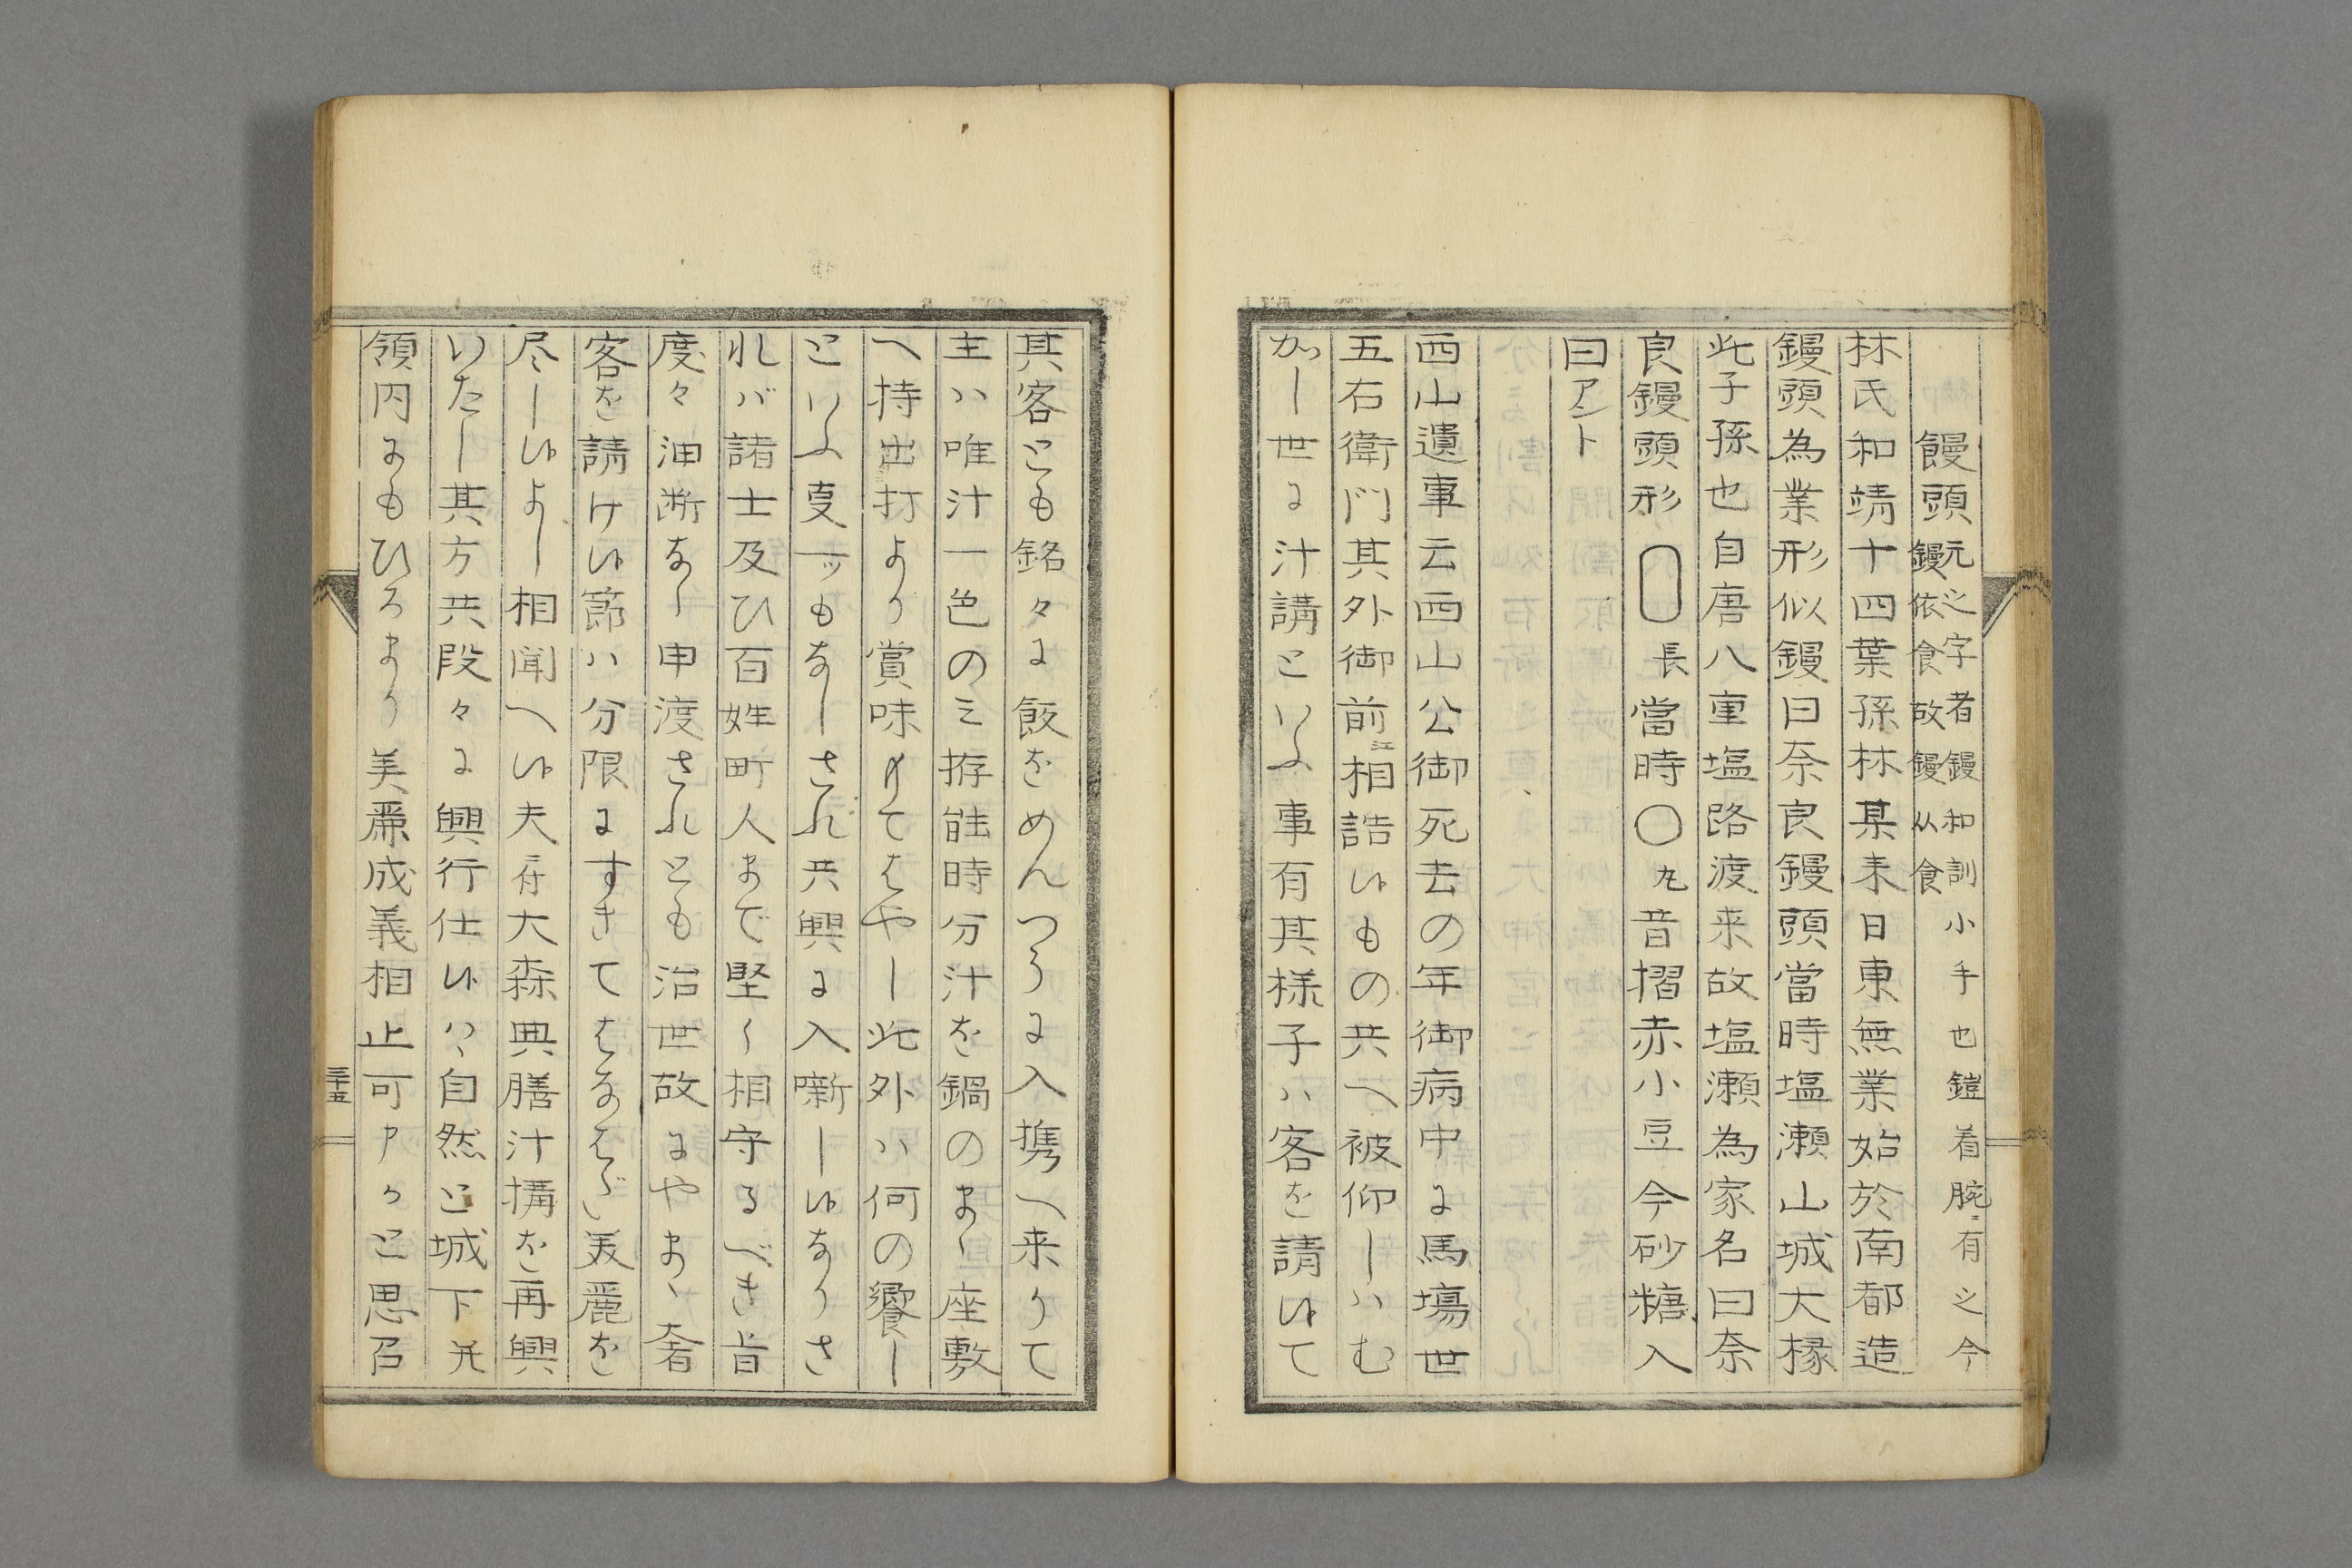 饅頭元之字者鏝和訓小手也鎧着腕ニ有之今
鏝依食故鏝从食
林氏和靖十四葉孫林某来日東無業始於南都造
鏝頭為業形似鏝曰奈良鏝頭當時塩瀬山城大椽
此子孫也自唐八重塩路渡来故塩瀬為家名曰奈
良鏝頭形 長當時〇丸昔摺赤小豆今砂糖入
曰アント
西山遺事云西山公御死去の年御病中に馬塲世
五右衛門其外御前江相詰候もの共へ被仰しハむ
かし世に汁講といふ事有其様子ハ客を請候て
其客とも銘々に飯をめんつうに入携へ来りて
主ハ唯汁一色のミ拵能時分汁を鍋のまゝ座敷
へ持出打より賞味してはやし此外ハ何の饗し
といふ叓一ツもなしされ共興に入噺し候なりさ
れバ諸士及ひ百姓町人まで堅く相守るべき旨
度々油断なく申渡されとも治世故にやまゝ奢
客を請け候節ハ分限にすきてはなはだ美麗を
尽し候よし相聞へ候夫ニ付大森典膳汁搆を再興
いたし其方共段々に興行仕候ハヽ自然と城下并
領内にもひろまり美麗成義相止可申かと思召
三十五